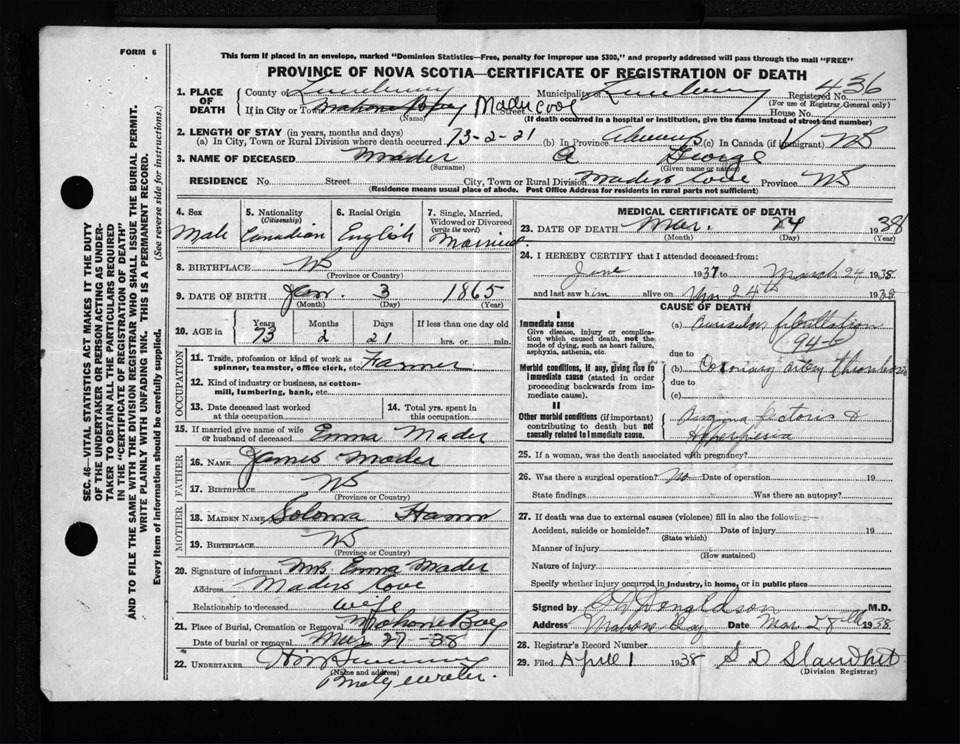 FORM 6
This form if placed in an envelope, marked "Dominion Statistics—Free, penalty for improper use $300," and properly addressed will pass through the mail "FREE"
PROVINCE OF NOVA SCOTIA—CERTIFICATE OF REGISTRATION OF DEATH
1. PLACE OF DEATH County of Lunenburg Municipality of Lunenburg Registered No. 436
(For use of Registrar General only)
If in City or Town Mahone Bay Street House No.
(Name) (If death occurred in a hospital or institution, give the name instead of street and number)
2. LENGTH OF STAY (in years, months and days)
(a) In City, Town or Rural Division where death occurred 73-2-21 (b) In Province Always (c) In Canada (if immigrant) NS
3. NAME OF DECEASED Mader A George
(Surname) (Given name or names)
RESIDENCE No. Street City, Town or Rural Division Maders Cove Province NS
(Residence means usual place of abode. Post Office Address for residents in rural parts not sufficient)
4. Sex Male
5. Nationality (Citizenship) Canadian
6. Racial Origin English
7. Single, Married, Widowed or Divorced (write the word) Married
8. BIRTHPLACE NS
(Province or Country)
9. DATE OF BIRTH Jan. 3 1865
(Month) (Day) (Year)
10. AGE in Years 73 Months 2 Days 21 If less than one day old
hrs. or min.
OCCUPATION
11. Trade, profession or kind of work as spinner, teamster, office clerk, etc. Farmer
12. Kind of industry or business, as cotton-mill, lumbering, bank, etc.
13. Date deceased last worked at this occupation
14. Total yrs. spent in this occupation
15. If married give name of wife or husband of deceased Emma Mader
FATHER
16. NAME James Mader
17. BIRTHPLACE NS
(Province or Country)
MOTHER
18. MAIDEN NAME Soloma Hamm
19. BIRTHPLACE NS
(Province or Country)
20. Signature of informant Mrs Emma Mader
Address Maders Cove
Relationship to deceased wife
21. Place of Burial, Cremation or Removal Mahone Bay
Date of burial or removal Mar 27-38
22. UNDERTAKER
(Name and address)
MEDICAL CERTIFICATE OF DEATH
23. DATE OF DEATH Mar. 24 1938
(Month) (Day) (Year)
24. I HEREBY CERTIFY that I attended deceased from:
June 1937 to March 24 1938
and last saw him alive on Mar 24th 1938
CAUSE OF DEATH
I
Immediate cause
Give disease, injury or complication which caused death, not the mode of dying, such as heart failure, asphyxia, asthenia, etc.
(a) Auricular fibrillation
94-b
due to
Morbid conditions, if any, giving rise to immediate cause (stated in order proceeding backwards from immediate cause).
(b) Coronary artery thrombosis
due to
(c)
II
Other morbid conditions (if important) contributing to death but not causally related to immediate cause.
Angina Pectoris &
25. If a woman, was the death associated with pregnancy?
26. Was there a surgical operation? No Date of operation 19
State findings Was there an autopsy?
27. If death was due to external causes (violence) fill in also the following:—
Accident, suicide or homicide? Date of injury 19
(State which)
Manner of injury
(How sustained)
Nature of injury
Specify whether injury occurred in industry, in home, or in public place
Signed by Donaldson M.D.
Address Mahone Bay Date Mar 28th 1938
28. Registrar's Record Number
29. Filed April 1 1938 S D Slauwhite
(Division Registrar)
SEC. 46—VITAL STATISTICS ACT MAKES IT THE DUTY
OF THE UNDERTAKER OR PERSON ACTING AS UNDER-
TAKER TO OBTAIN ALL THE PARTICULARS REQUIRED
IN THE "CERTIFICATE OF REGISTRATION OF DEATH"
AND TO FILE THE SAME WITH THE DIVISION REGISTRAR WHO SHALL ISSUE THE BURIAL PERMIT.
WRITE PLAINLY WITH UNFADING INK. THIS IS A PERMANENT RECORD.
Every item of information should be carefully supplied. (See reverse side for instructions.)